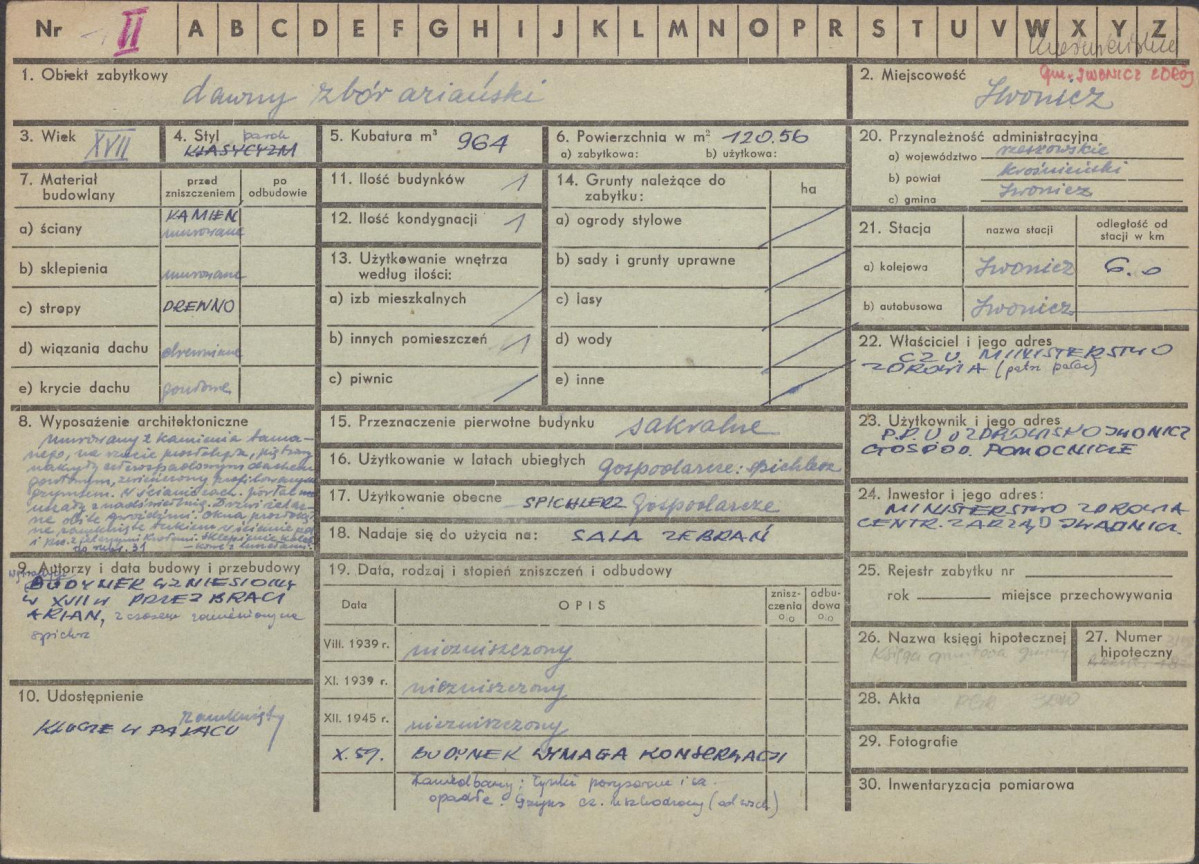 Nr II A B C D E F G H I J K L M N O P R S T U V W X Y Z
gm. IWONICZ ZDRÓJ
1. Obiekt zabytkowy
dawny zbór ariański
2. Miejscowość
Iwonicz
3. Wiek XVII
4. Styl barok
KLASYCYZM
5. Kubatura m³ 964
6. Powierzchnia w m² 120,56
a) zabytkowa: b) użytkowa:
7. Materiał budowlany
przed zniszczeniem
po odbudowie
a) ściany KAMIEŃ
murowane
b) sklepienia murowane
c) stropy DREWNO
d) wiązania dachu drewniane
e) krycie dachu gontowe
8. Wyposażenie architektoniczne
murowany z kamienia łama-
nego, na rzucie prostokąta, piętrowy
nakryty czterospadowym dachem
gontowym, zwieńczony profilowanym
gzymsem.
9. Autorzy i data budowy i przebudowy
BUDYNEK WZNIESIONY
W XVII W PRZEZ BRACI
ARIAN, z czasem zamieniony na
spichrz
10. Udostępnienie
zamknięty
KLUCZE W PAŁACU
11. Ilość budynków 1
12. Ilość kondygnacji 1
13. Użytkowanie wnętrza
według ilości:
a) izb mieszkalnych
b) innych pomieszczeń 1
c) piwnic
14. Grunty należące do
zabytku: ha
a) ogrody stylowe
b) sady i grunty uprawne
c) lasy
d) wody
e) inne
15. Przeznaczenie pierwotne budynku sakralne
16. Użytkowanie w latach ubiegłych gospodarcze: spichlerz
17. Użytkowanie obecne SPICHLERZ gospodarcze
18. Nadaje się do użycia na: SALA ZEBRAŃ
19. Data, rodzaj i stopień zniszczeń i odbudowy
Data OPIS znisz-
czenia
% odbu-
dowa
%
VIII. 1939 r. niezniszczony
XI. 1939 r. niezniszczony
XII. 1945 r. niezniszczony
X.59. BUDYNEK WYMAGA KONSERWACJI
Zaniedbany: Tynki porysowane i
opadłe. Gzyms cz. uszkodzony (od wsch)
20. Przynależność administracyjna
a) województwo rzeszowskie
b) powiat krośnieński
c) gmina Iwonicz
21. Stacja nazwa stacji odległość od
stacji w km
a) kolejowa Iwonicz 6.0
b) autobusowa Iwonicz
22. Właściciel i jego adres
C.Z.U. MINISTERSTWO
ZDROWIA (patrz pałac)
23. Użytkownik i jego adres
P.P. UZDROWISKO IWONICZ
GOSPOD. POMOCNICZE
24. Inwestor i jego adres:
MINISTERSTWO ZDROWIA
CENTR. ZARZĄD
25. Rejestr zabytku nr
rok miejsce przechowywania
26. Nazwa księgi hipotecznej
Księga gruntowa gminy
27. Numer
hipoteczny
28. Akta
29. Fotografie
30. Inwentaryzacja pomiarowa